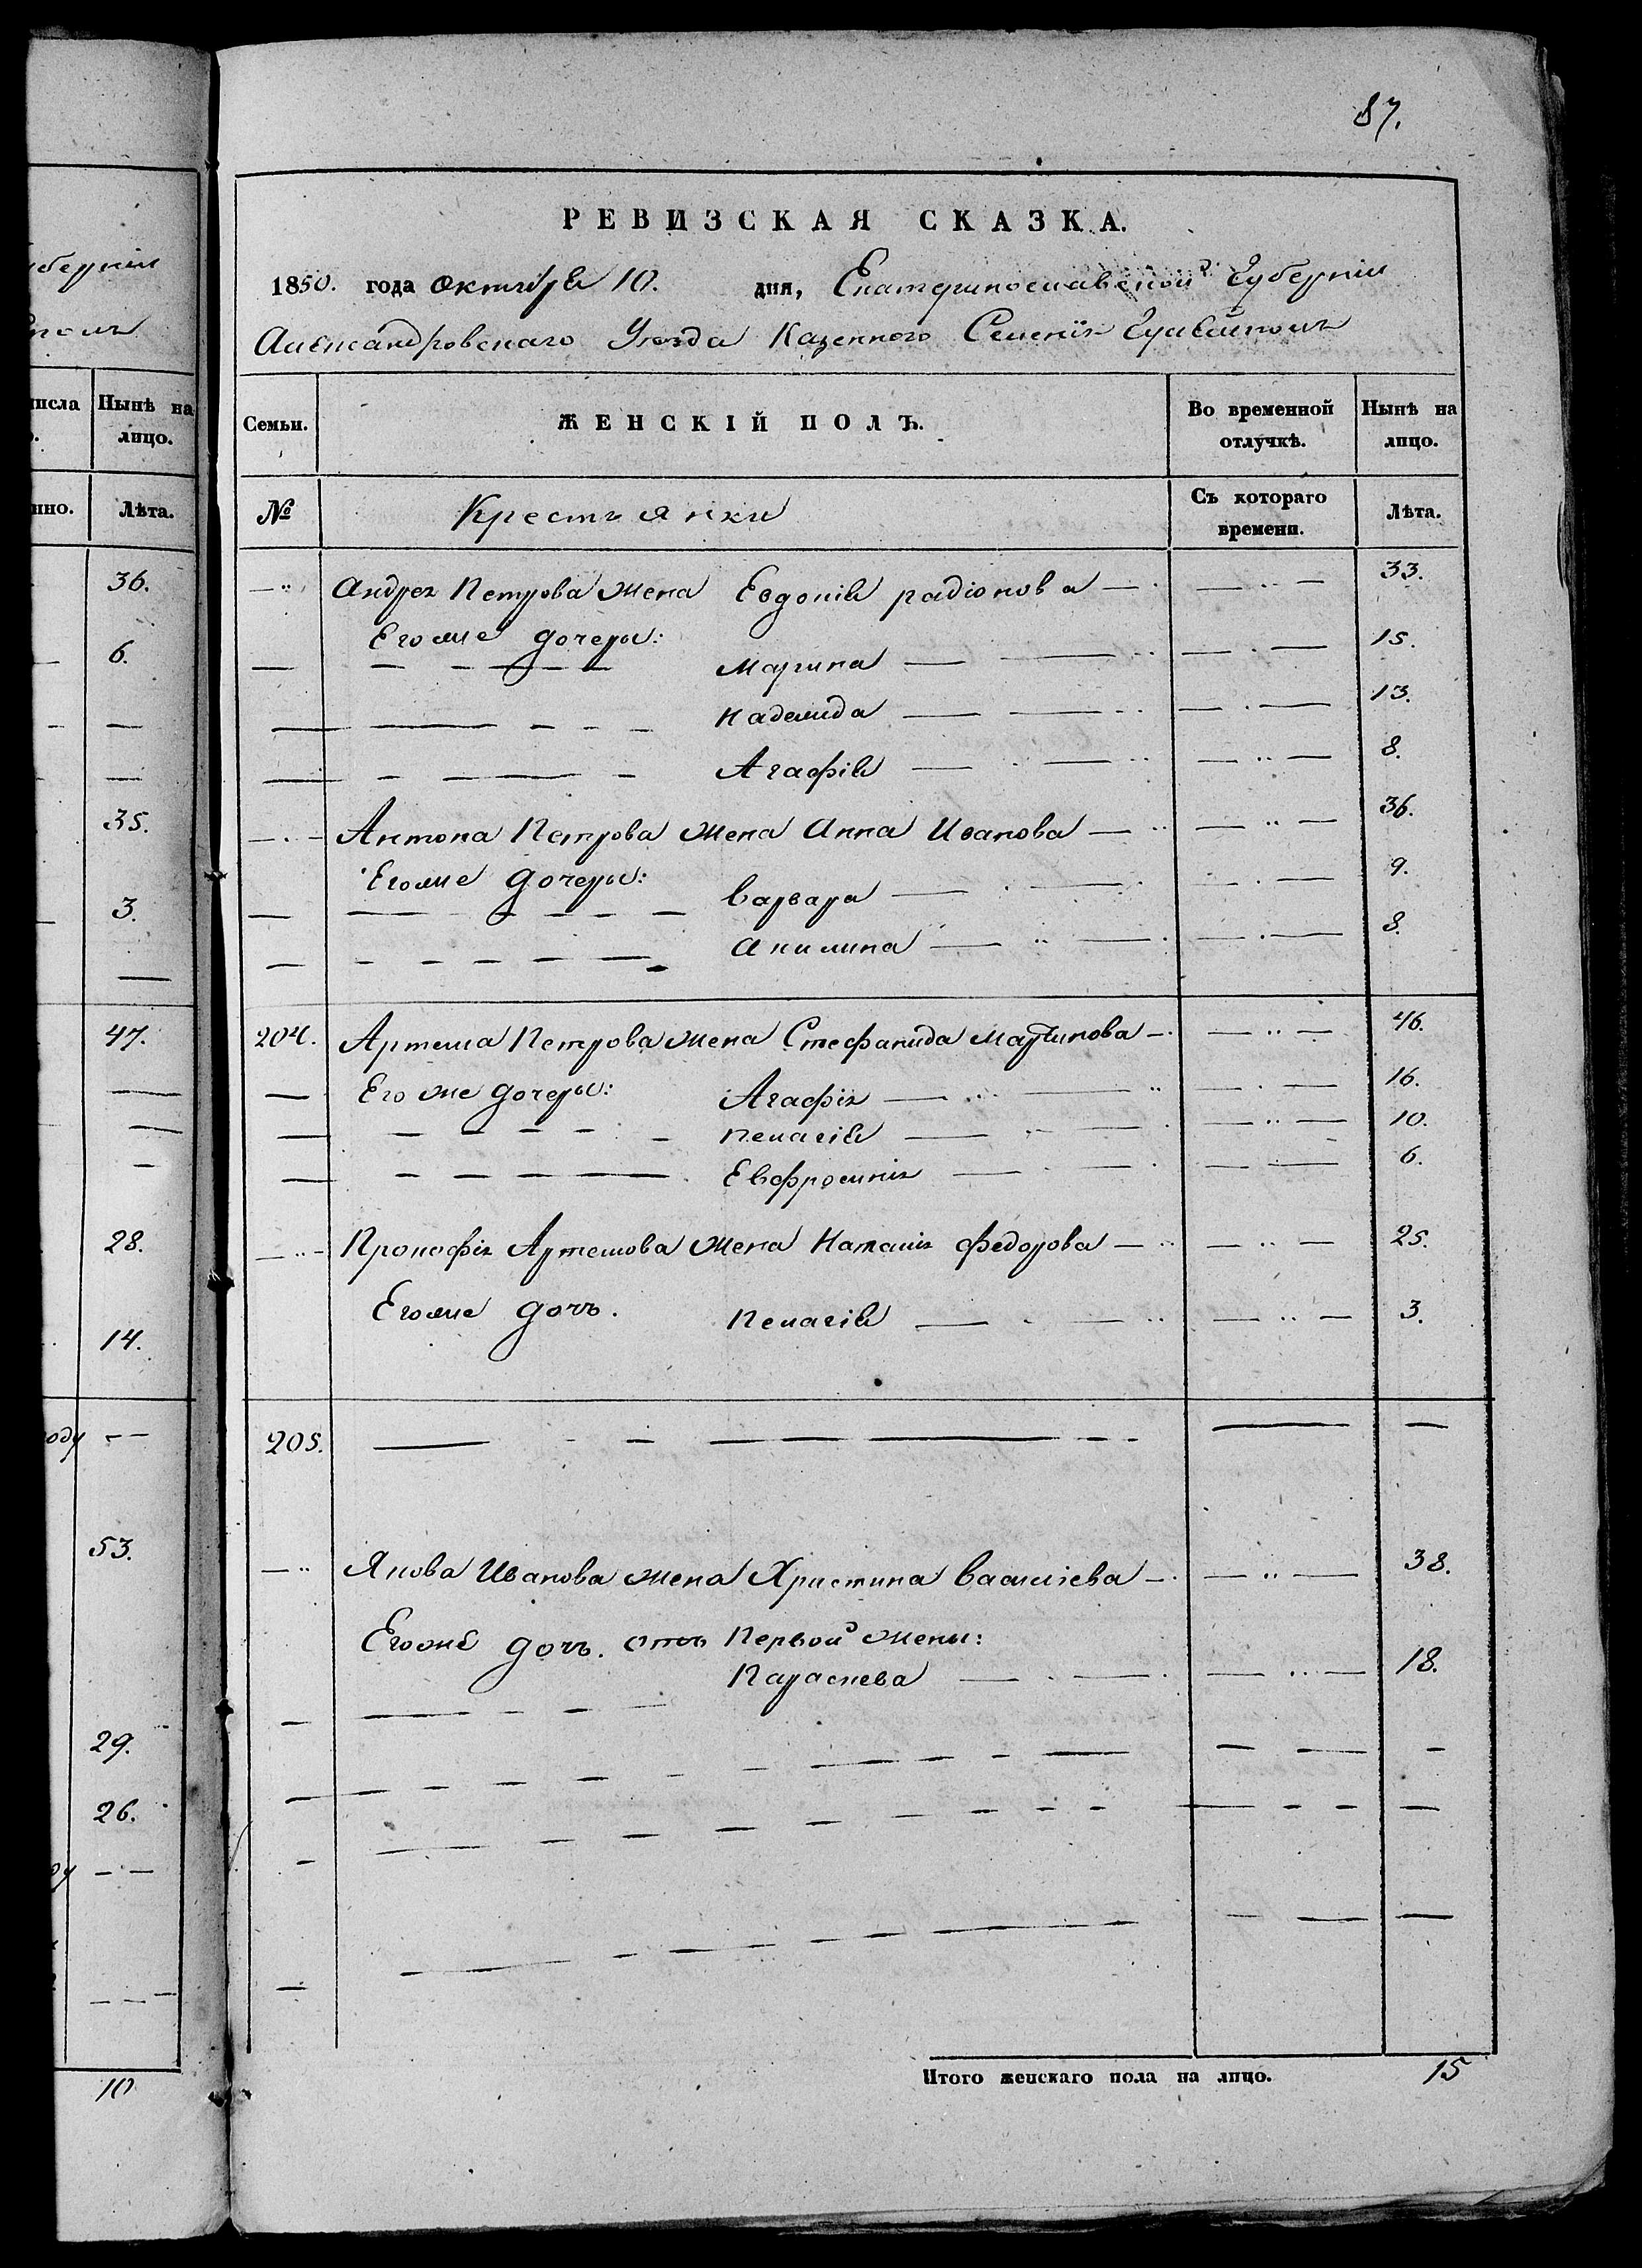 87.
РЕВИЗСКАЯ СКАЗКА.
1850. года октября 10. дня, Екатеринославской Губерніи
Александровскаго Уезда Казенного Селенія Гуляйполя
Семьи. ЖЕНСКІЙ ПОЛЪ. Во временной отлучкѣ. Нынѣ на лицо.
№ Крестьянки Съ котораго времени. Лѣта.
Андрея Петрова жена Евдокія радіонова 33.
Егоже дочеры:
Марина 15.
Надежда 13.
Агафія 8.
Антона Петрова жена Анна Иванова 36.
Егоже дочеры:
Варвара 9.
Акилина 8.
204. Артема Петрова жена Стефанида Мартинова 46.
Его же дочеры: Агафія 16.
Пелагія 10.
Евфросинія 6.
Прокофія Артемова жена Наталія Федорова 25.
Егоже дочь. Пелагія 3.
205.
Якова Иванова жена Христина Василіева 38.
Егоже дочь. отъ Первой жены:
Параскева 18.
Итого женскаго пола на лицо. 15
губерніи
Нынѣ на лицо.
Лѣта.
36.
6.
35.
3.
47.
28.
14.
53.
29.
26.
10